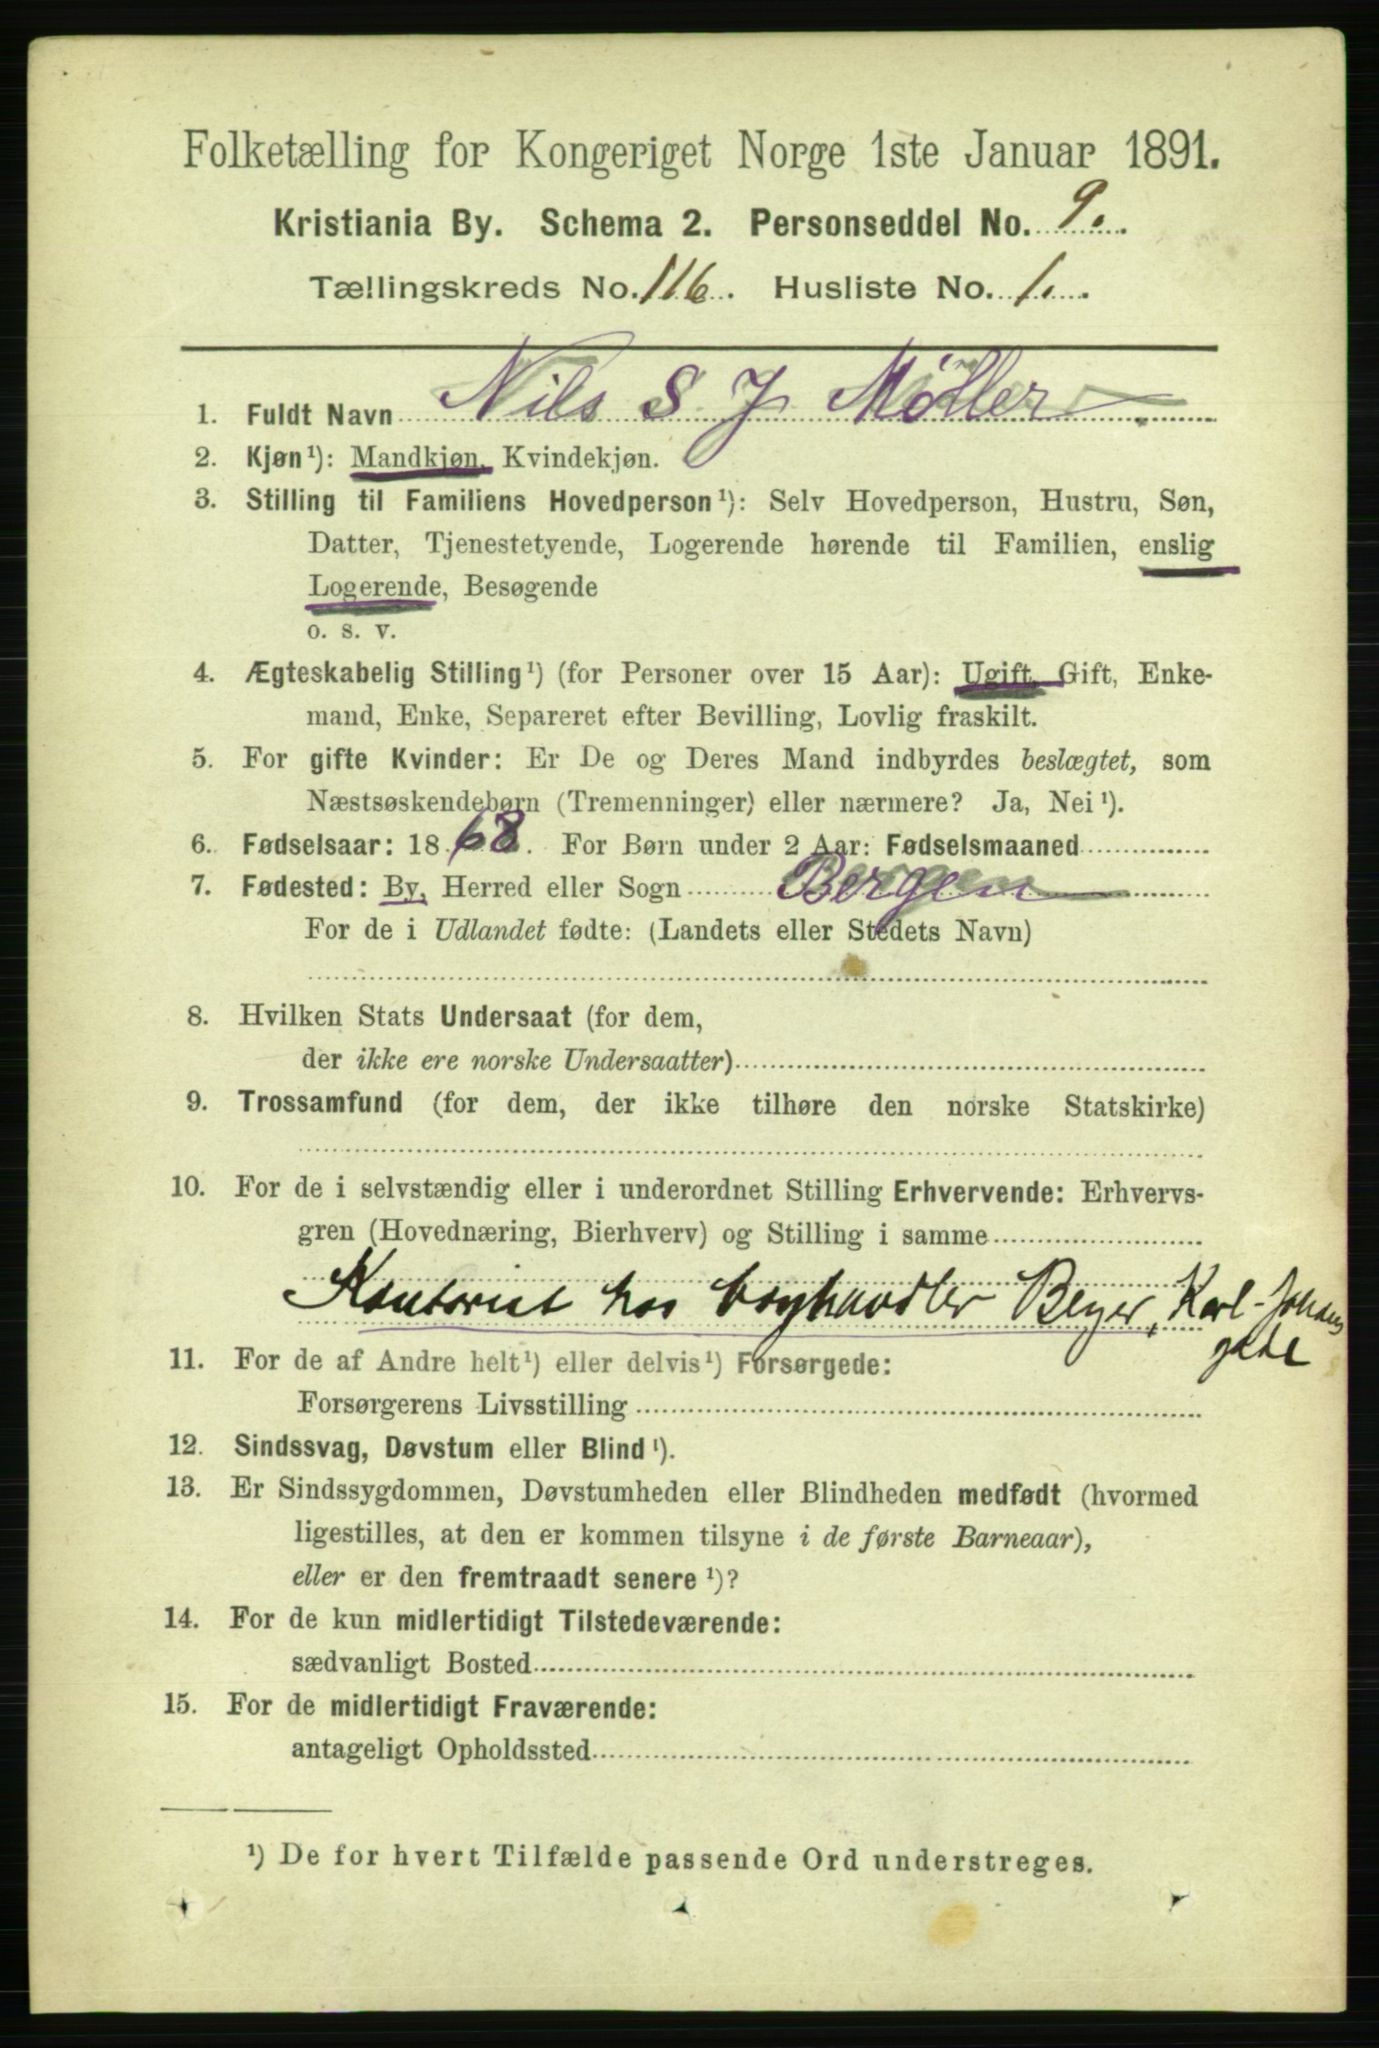 Folketælling for Kongeriget Norge 1ste Januar 1891.
Kristiania By. Schema 2. Personseddel No. 9.
Tællingskreds No. 116. Husliste No. 1.
1. Fuldt Navn Nils S J Møller
2. Kjøn¹): Mandkjøn, Kvindekjøn.
3. Stilling til Familiens Hovedperson¹): Selv Hovedperson, Hustru, Søn,
Datter, Tjenestetyende, Logerende hørende til Familien, enslig
Logerende, Besøgende
o. s. v.
4. Ægteskabelig Stilling¹) (for Personer over 15 Aar): Ugift, Gift, Enke-
mand, Enke, Separeret efter Bevilling, Lovlig fraskilt.
5. For gifte Kvinder: Er De og Deres Mand indbyrdes beslægtet, som
Næstsøskendebørn (Tremenninger) eller nærmere? Ja, Nei¹).
6. Fødselsaar: 1868. For Børn under 2 Aar: Fødselsmaaned
7. Fødested: By, Herred eller Sogn Bergen
For de i Udlandet fødte: (Landets eller Stedets Navn)
8. Hvilken Stats Undersaat (for dem,
der ikke ere norske Undersaatter)
9. Trossamfund (for dem, der ikke tilhøre den norske Statskirke)
10. For de i selvstændig eller i underordnet Stilling Erhvervende: Erhvervs-
gren (Hovednæring, Bierhverv) og Stilling i samme
Kontorist hos boghandler Beyer, Karl-Johans
gade
11. For de af Andre helt¹) eller delvis¹) Forsørgede:
Forsørgerens Livsstilling
12. Sindssvag, Døvstum eller Blind¹).
13. Er Sindssygdommen, Døvstumheden eller Blindheden medfødt (hvormed
ligestilles, at den er kommen tilsyne i de første Barneaar),
eller er den fremtraadt senere¹)?
14. For de kun midlertidigt Tilstedeværende:
sædvanligt Bosted
15. For de midlertidigt Fraværende:
antageligt Opholdssted
¹) De for hvert Tilfælde passende Ord understreges.